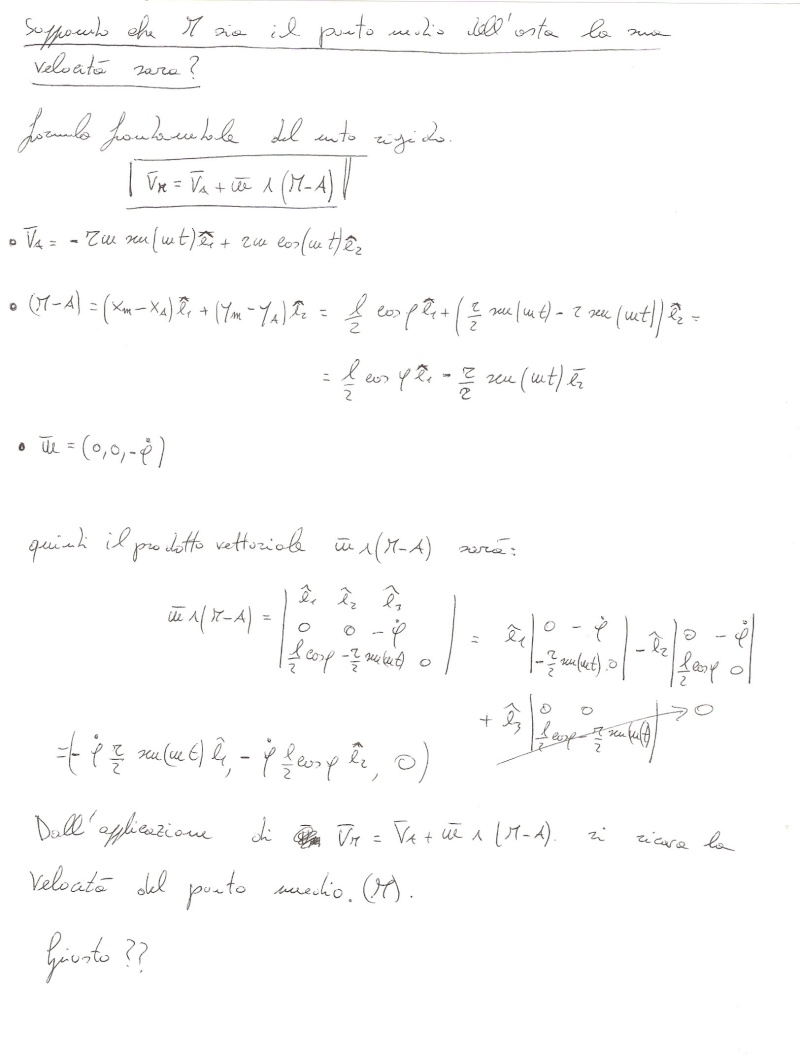 Supponendo che M sia il punto medio dell'asta la sua
velocità sarà?
formula fondamentale del moto rigido.
V̄_M = V̄_A + ω̄ ∧ (M-A)
• V̄_A = - rω sen(ωt) ê₁ + rω cos(ωt) ê₂
• (M-A) = (x_m - x_A) ê₁ + (y_m - y_A) ê₂ = l/2 cos φ ê₁ + (r/2 sen(ωt) - r sen(ωt)) ê₂ =
= l/2 cos φ ê₁ - r/2 sen(ωt) ē₂
• ω̄ = (0,0,-φ̇)
quindi il prodotto vettoriale ω̄ ∧ (M-A) sarà:
ω̄ ∧ (M-A) = | ê₁ ê₂ ê₃ ; 0 0 -φ̇ ; l/2 cosφ -r/2 sen(ωt) 0 | = ê₁ | 0 -φ̇ ; -r/2 sen(ωt) 0 | - ê₂ | 0 -φ̇ ; l/2 cosφ 0 |
+ ê₃ | 0 0 ; l/2 cosφ -r/2 sen(ωt) | → 0
= (- φ̇ r/2 sen(ωt) ê₁, - φ̇ l/2 cosφ ê₂, 0)
Dall'applicazione di V̄_M = V̄_A + ω̄ ∧ (M-A). si ricava la
velocità del punto medio. (M).
Giusto ??